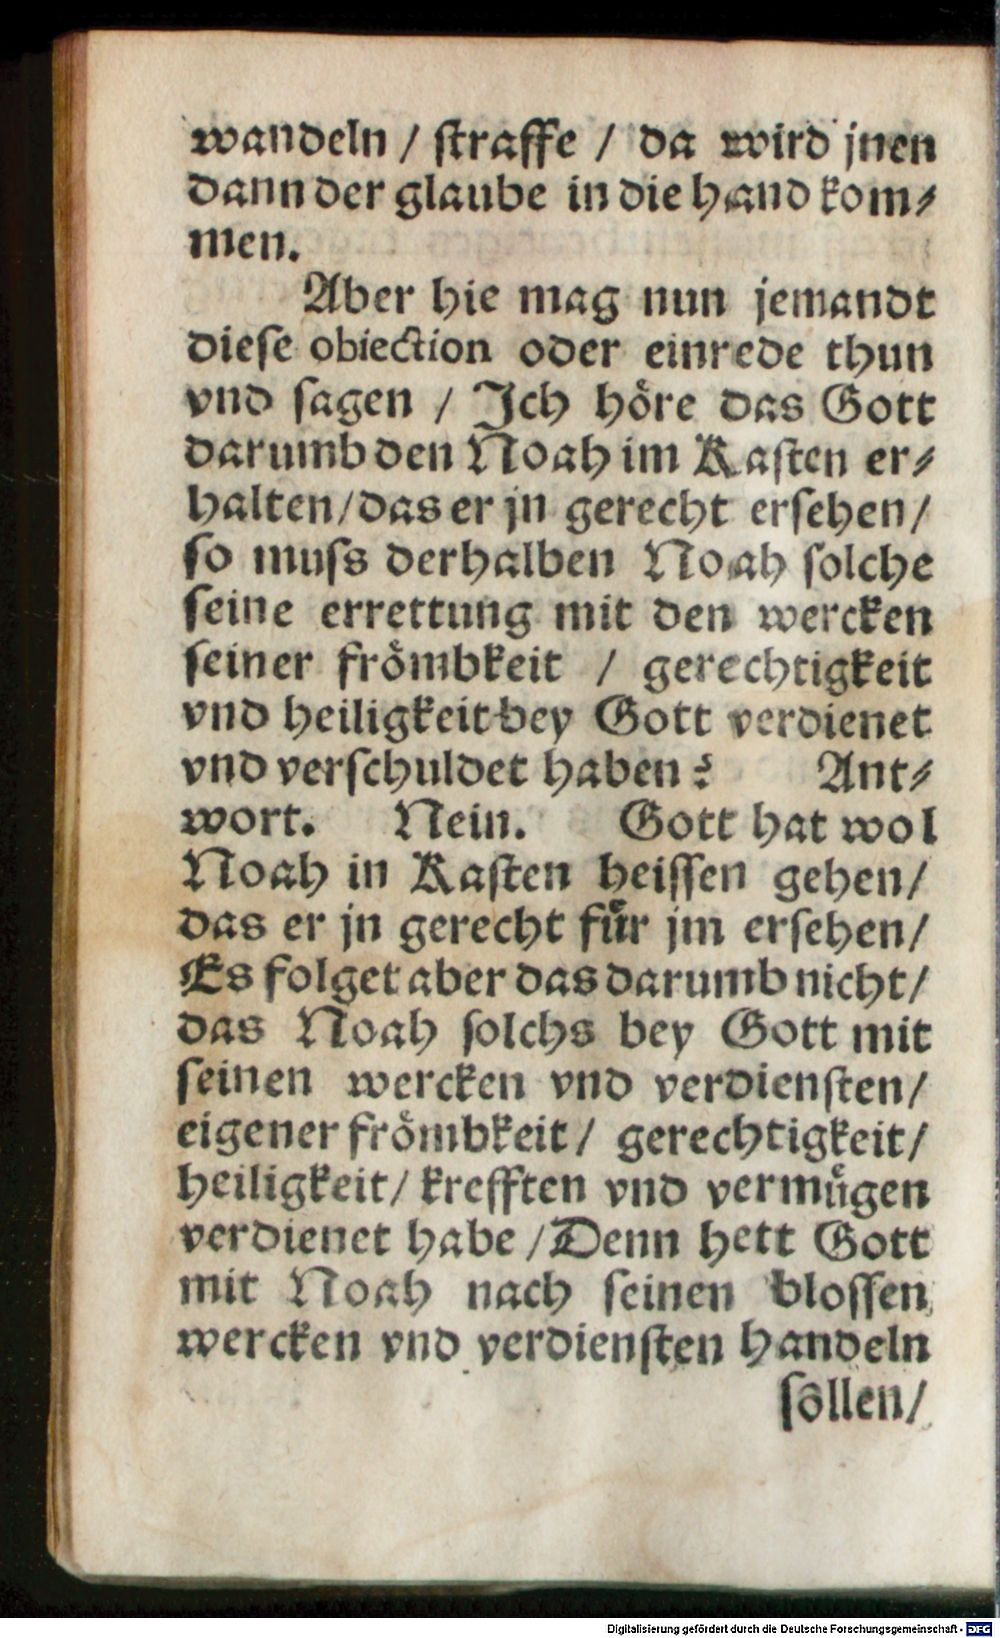 wandeln / straffe / da wird jnen
dann der glaube in die hand kom⸗
men.
Aber hie mag nun jemandt
diese obiection oder einrede thun
vnd sagen / Jch hoͤre das Gott
darumb den Noah im Kasten er⸗
halten / das er jn gerecht ersehen /
so muss derhalben Noah solche
seine errettung mit den wercken
seiner froͤmbkeit / gerechtigkeit
vnd heiligkeit bey Gott verdienet
vnd verschuldet haben? Ant⸗
wort. Nein. Gott hat wol
Noah in Kasten heissen gehen /
das er jn gerecht fuͤr jm ersehen /
Es folget aber das darumb nicht /
das Noah solchs bey Gott mit
seinen wercken vnd verdiensten /
eigener froͤmbkeit / gerechtigkeit /
heiligkeit / krefften vnd vermuͤgen
verdienet habe / Denn hett Gott
mit Noah nach seinen blossen
wercken vnd verdiensten handeln
soͤllen /
Digitalisierung gefördert durch die Deutsche Forschungsgemeinschaft - DFG